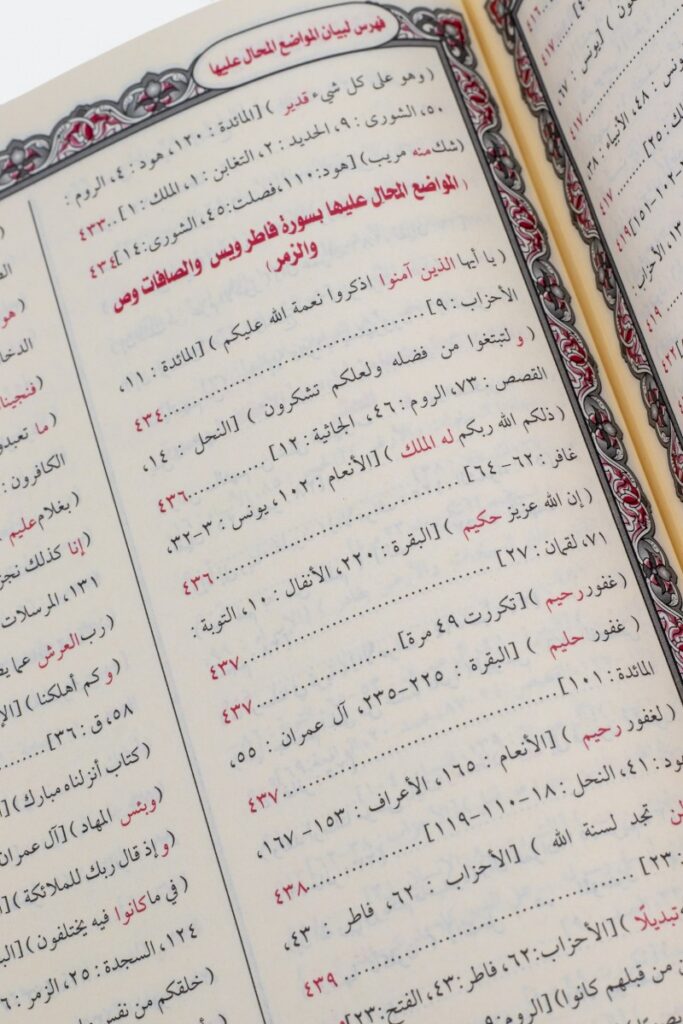 فهرس لبيان المواضع المحال عليها
( وهو على كل شيء قدير ) [المائدة : ١٢٠، هود : ٤، الروم :
٥٠، الشورى : ٩، الحديد : ٢، التغابن : ١، الملك : ١]..٤٣٣
(شك منه مريب) [هود: ١١٠، فصلت: ٤٥، الشورى: ١٤] ٤٣٤
( المواضع المحال عليها بسورة فاطر ويس والصافات وص
والزمر )
( يا أيها الذين آمنوا اذكروا نعمة الله عليكم ) [المائدة : ١١،
الأحزاب : ٩] ........................ ٤٣٤
( و لتبتغوا من فضله ولعلكم تشكرون ) [النحل : ١٤،
القصص : ٧٣، الروم : ٤٦، الجاثية : ١٢] ............ ٤٣٦
( ذلكم الله ربكم له الملك ) [الأنعام : ١٠٢، يونس : ٣-٣٢،
غافر : ٦٢-٦٤] ........................ ٤٣٦
( إن الله عزيز حكيم ) [البقرة : ٢٢٠، الأنفال : ١٠، التوبة :
٧١، لقمان : ٢٧] ........................ ٤٣٧
(غفور رحيم ) [تكررت ٤٩ مرة] ............ ٤٣٧
( غفور حليم ) [البقرة : ٢٢٥-٢٣٥، آل عمران : ٥٥،
المائدة : ١٠١] ........................ ٤٣٧
( لغفور رحيم ) [الأنعام : ١٦٥، الأعراف : ١٥٣- ١٦٧،
: ٤١، النحل : ١٨-١١٠-١١٩] ............ ٤٣٨
تجد لسنة الله ) [الأحزاب : ٦٢، فاطر : ٤٣،
: ٢٣] ........................ ٤٣٩
تبديلًا ) [الأحزاب: ٦٢، فاطر: ٤٣، الفتح: ٢٣]
من قبلهم كانوا) [الروم: ٩
(فنجيناه
( ما تعبدو
الكافرون :
( بغلام عليم
( إنا كذلك نجز
١٣١، المرسلات
( رب العرش عما يص
( و كم أهلكنا ) [الأ
٥٨، ق : ٣٦]
( كتاب أنزلناه مبارك )
( وبئس المهاد ) [آل عمران
( و إذ قال ربك للملائكة )
( في ما كانوا فيه يختلفون )
١٢٤، السجدة : ٢٥، الزمر :
( خلقكم من نفس